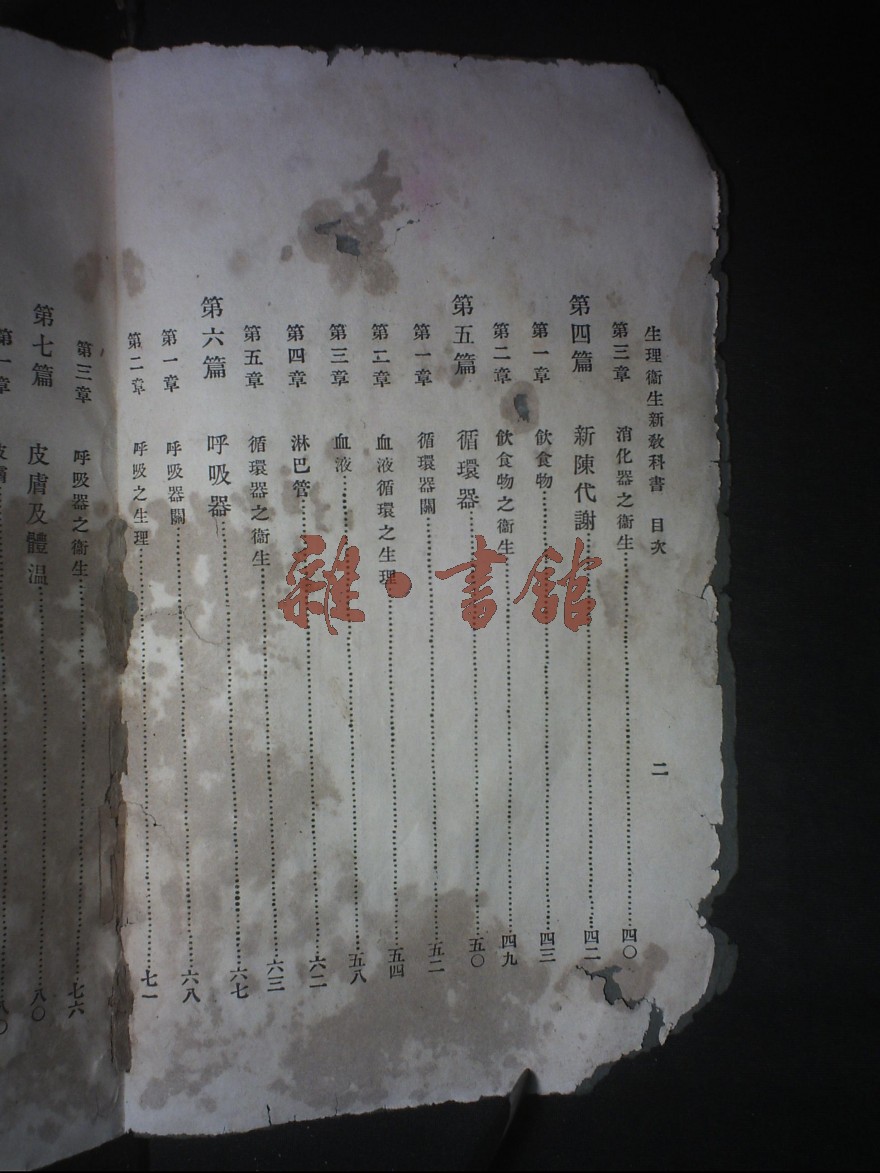 生理衞生新敎科書　目次　二
第三章　消化器之衞生……四〇
第四篇　新陳代謝……四二
第一章　飮食物……四三
第二章　飮食物之衞生……四九
第五篇　循環器……五〇
第一章　循環器關……五二
第二章　血液循環之生理……五四
第三章　血液……五八
第四章　淋巴管……六二
第五章　循環器之衞生……六三
第六篇　呼吸器……六七
第一章　呼吸器關……六八
第二章　呼吸之生理……七一
第三章　呼吸器之衞生……七六
第七篇　皮膚及體溫……八〇
第一章　皮膚……八〇
雜·書館